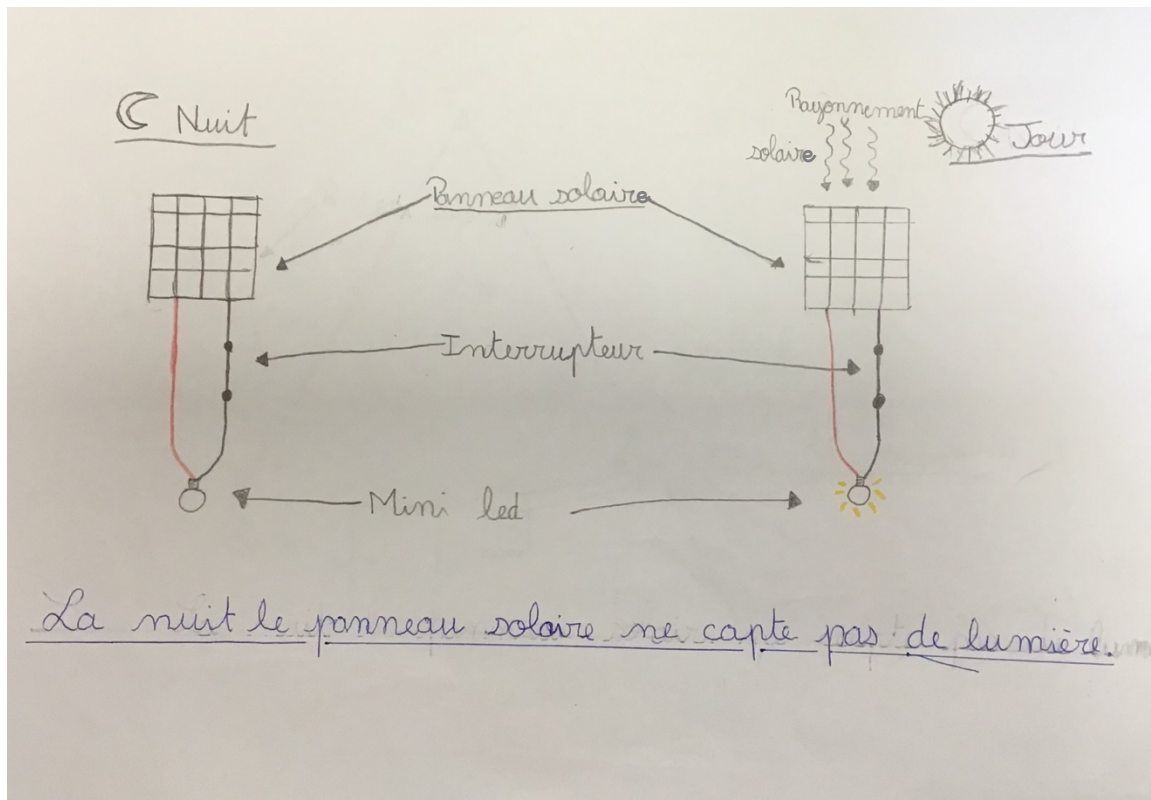 Nuit
Rayonnement
solaire
Jour
Panneau solaire
Interrupteur
Mini led
La nuit le panneau solaire ne capte pas de lumière.